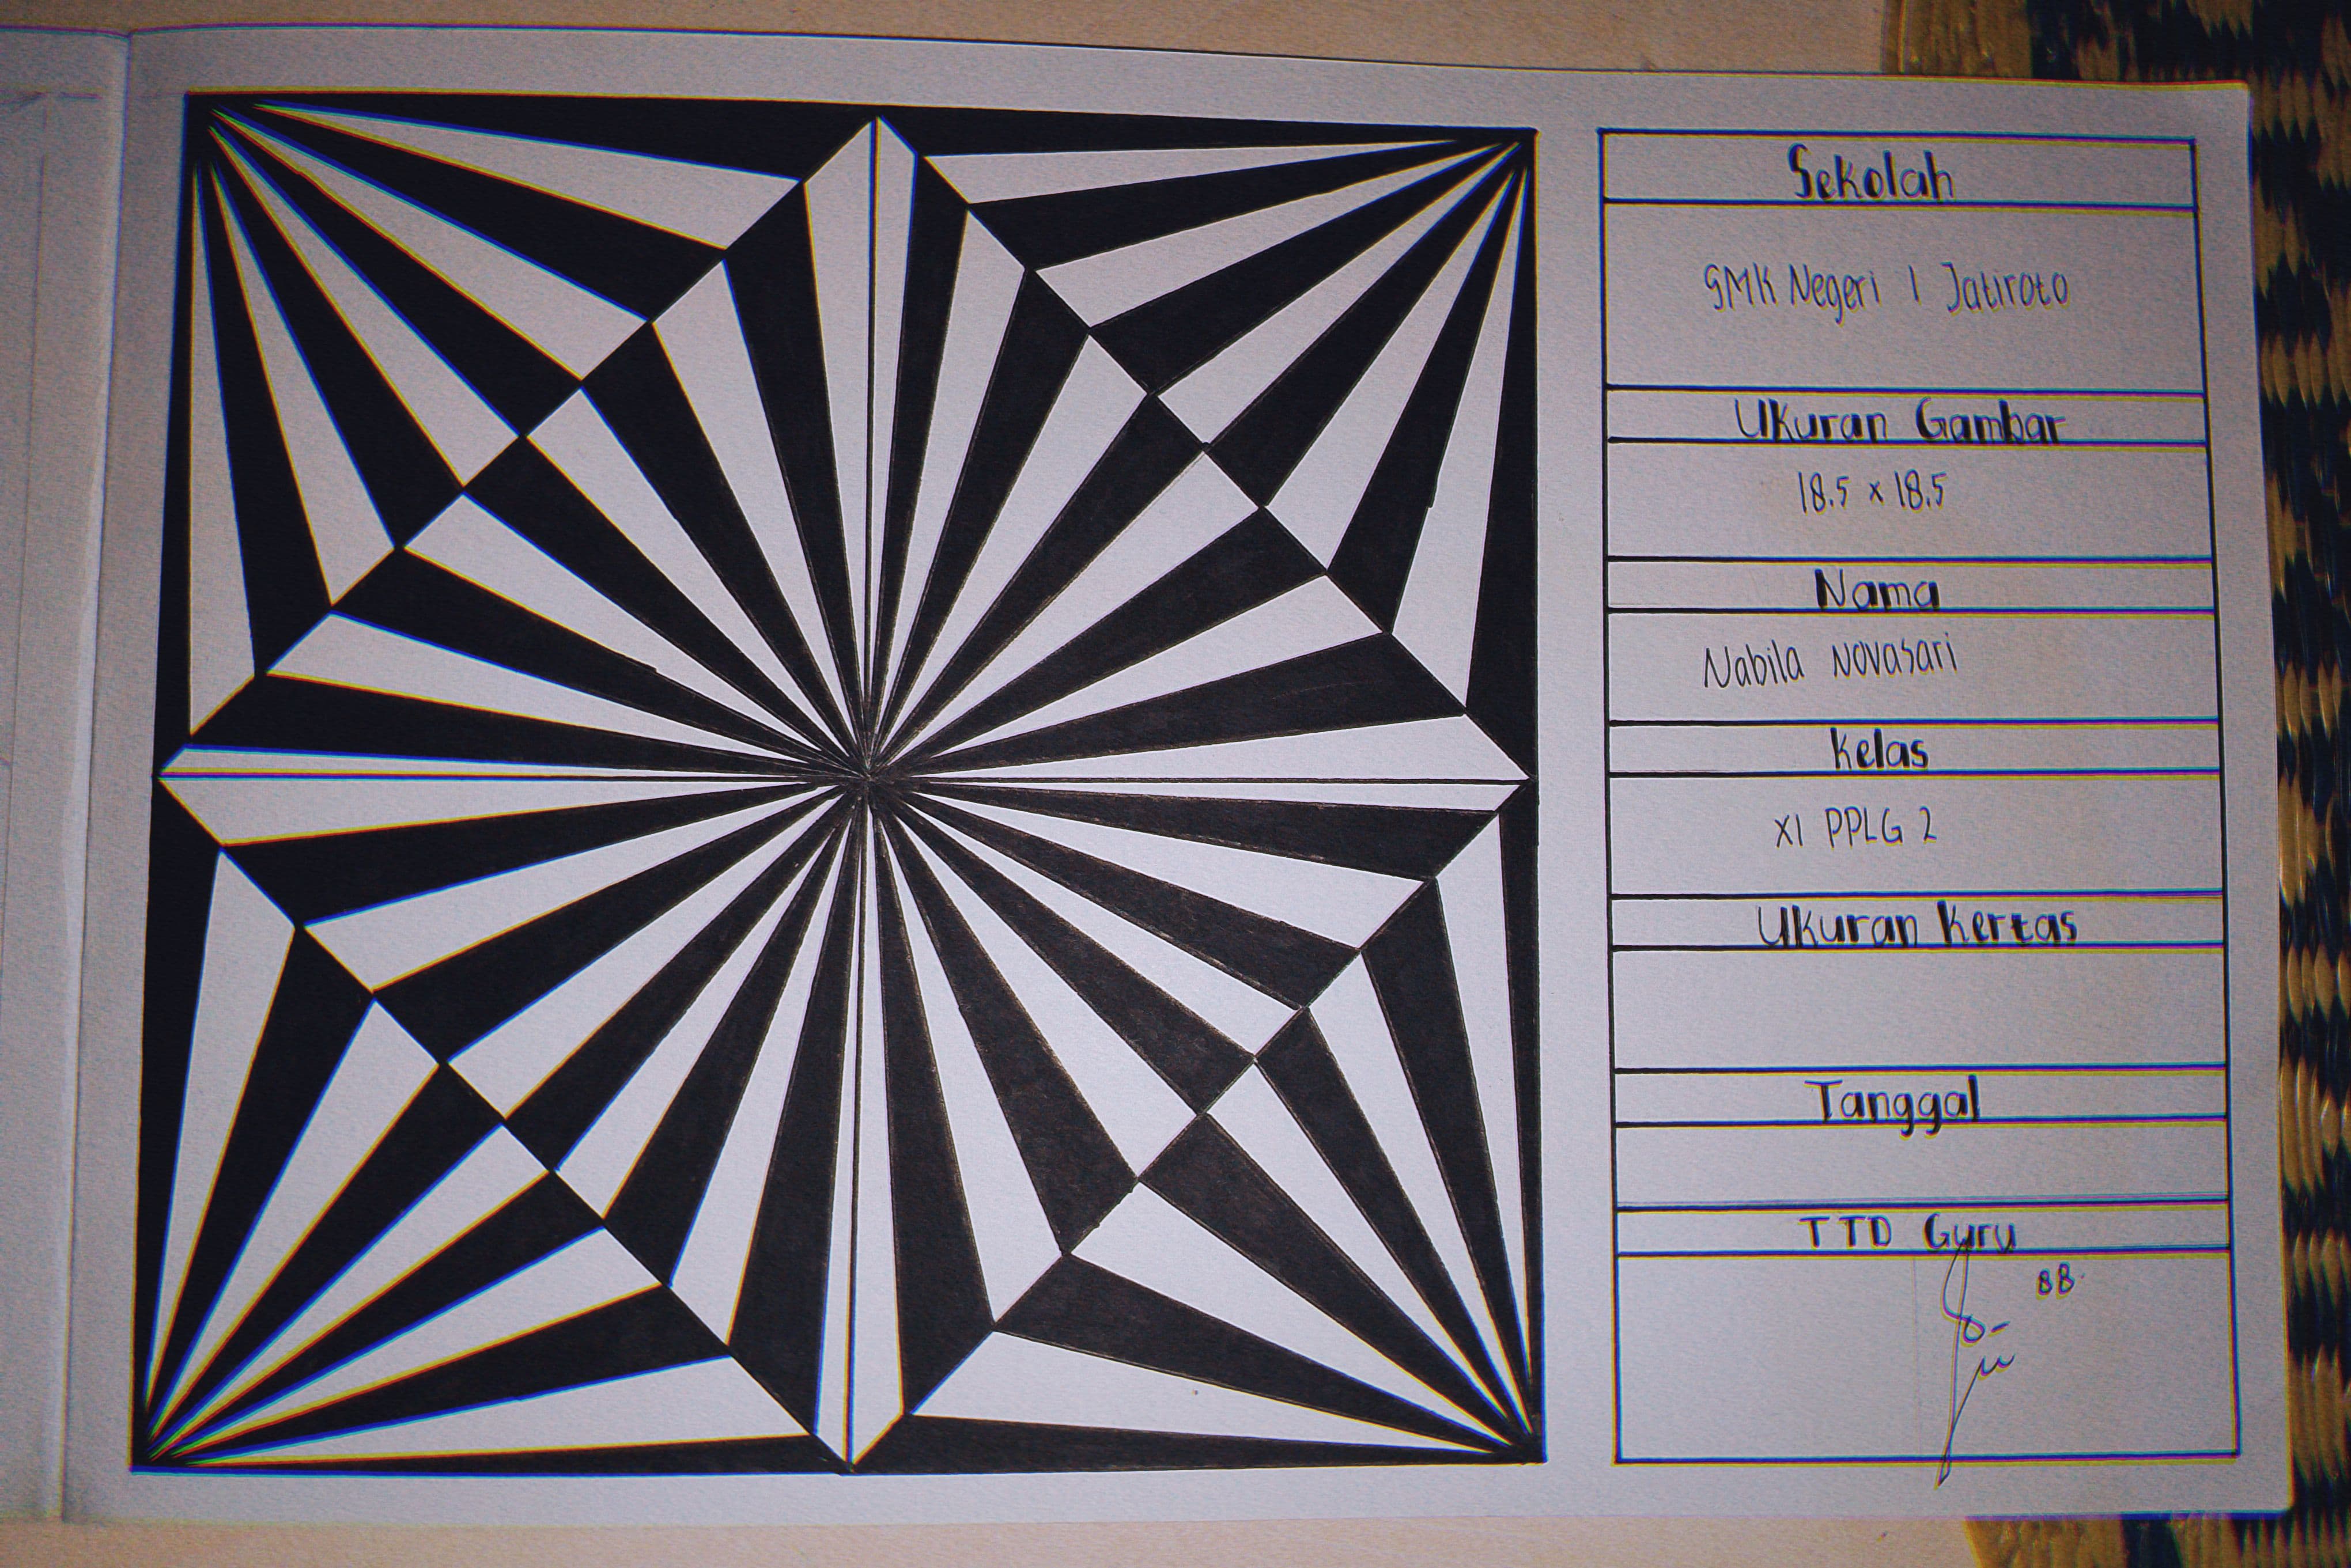 Sekolah
SMK Negeri 1 Jatiroto
Ukuran Gambar
18.5 x 18.5
Nama
Nabila Novasari
Kelas
XI PPLG 2
Ukuran Kertas
Tanggal
TTD Guru
88